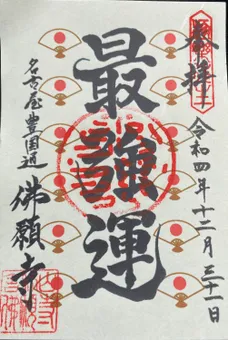 奉拝
令和四年十二月三十一日
最強運
名古屋豊国通
佛願寺